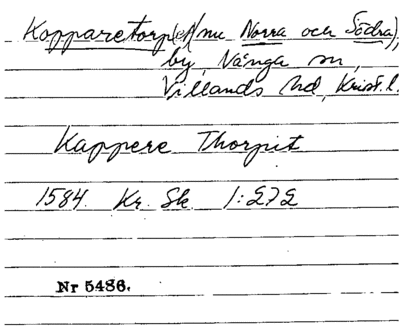 Kopparetorp(et) (nu Norra och Södra),
by, Vånga sn,
Villands hd, Krist. l.
Kappere Thorpit
1584. Kr. Sk. 1:272
Nr 5486.